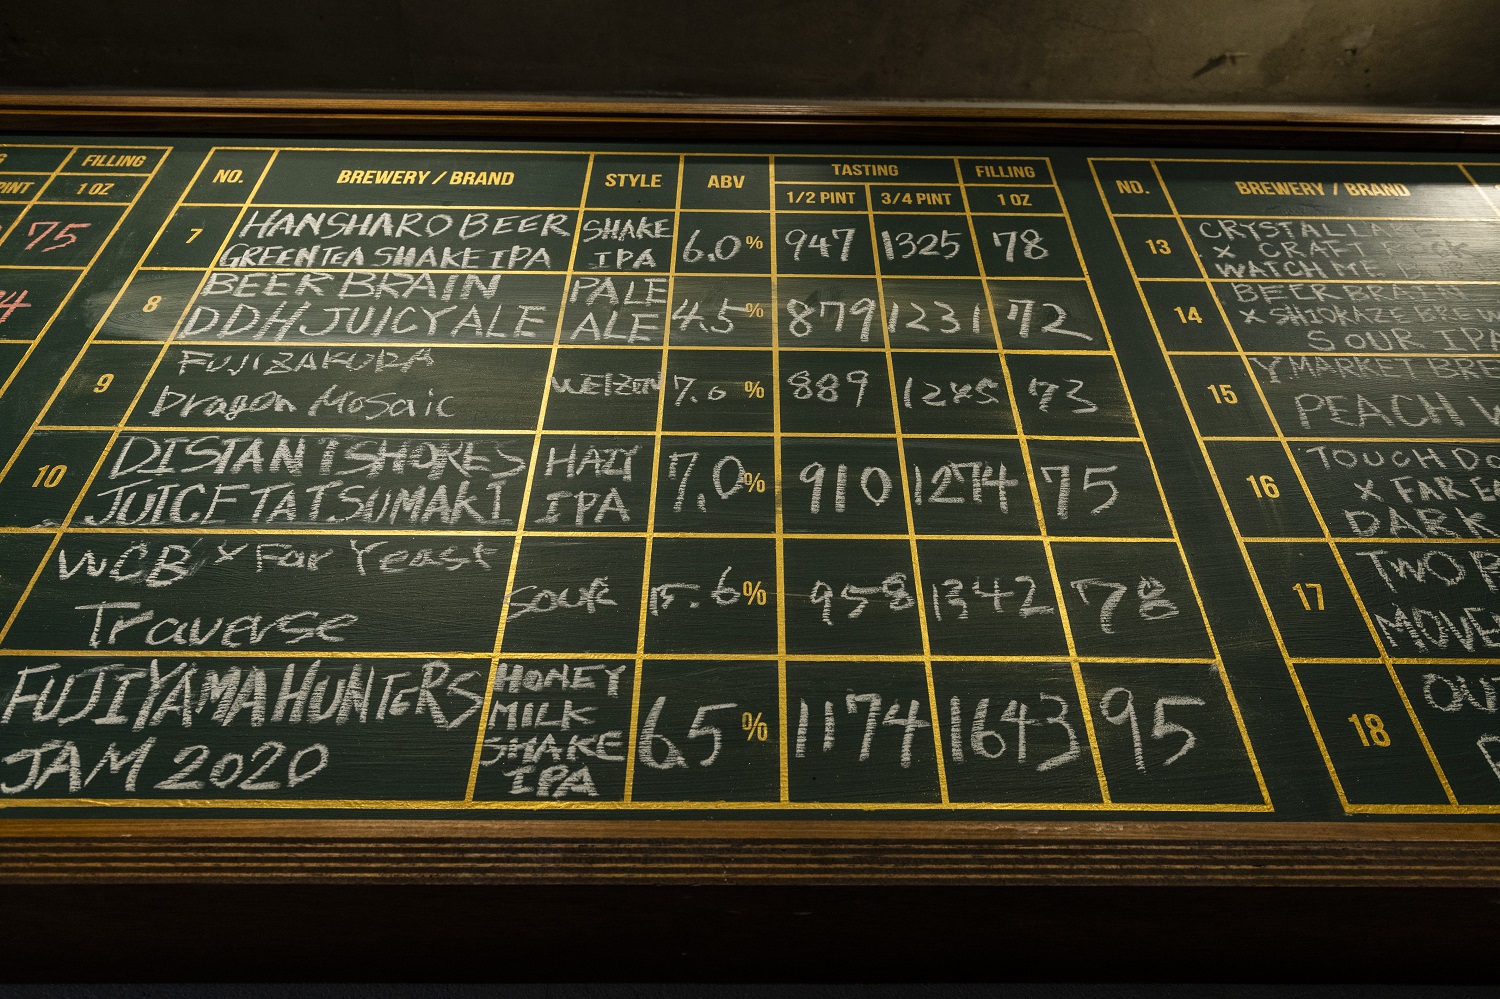 FILLING
PINT 1 OZ
75
NO. BREWERY / BRAND STYLE ABV TASTING FILLING
1/2 PINT 3/4 PINT 1 OZ
7 HANSHARO BEER SHAKE 6.0 % 947 1325 78
GREENTEA SHAKE IPA IPA
8 BEER BRAIN PALE 4.5 % 879 1231 72
DDH JUICY ALE ALE
9 FUJIZAKURA WEIZEN 7.0 % 889 1245 73
Dragon Mosaic
10 DISTANT SHORES HAZY 7.0 % 910 1274 75
JUICE TATSUMAKI IPA
WCB x Far Yeast SOUR 5.6 % 958 1342 78
Traverse
FUJIYAMA HUNTERS HONEY 6.5 % 1174 1643 95
JAM 2020 MILK
SHAKE
IPA
NO. BREWERY / BRAND
13 CRYSTAL LAKE
x CRAFT
WATCH ME
14 BEER BRAIN
x SHIOKAZE BREW
SOUR IPA
15 Y MARKET BRE
PEACH W
16 TOUCH DO
x FAR EA
DARK
17 TWO R
MOVE
18 OUT